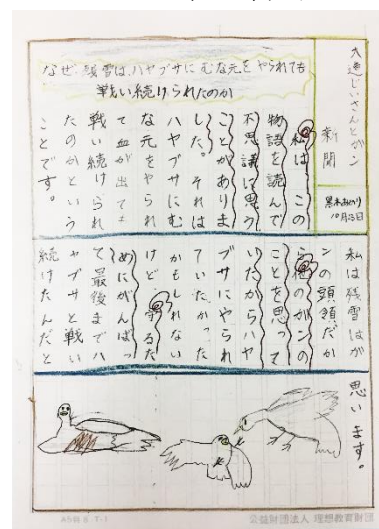 大造じいさんとガン
新聞
なぜ、残雪は、ハヤブサにむな元をやられても
戦い続けられたのか
私は この
物語を読んで
不思議に思う
ことがありま
した。それは
ハヤブサにむ
な元をやられ
て血が出ても
戦い続けられ
たのかという
ことです。
私は残雪はが
ンの頭領だか
ら他のガンの
ことを思って
いたからハヤ
ブサにやられ
ていたかった
かもしれない
けど 守るた
めにがんばっ
て最後までハ
ヤブサと戦い
続けたんだと
思います。
公益財団法人 理想教育財団